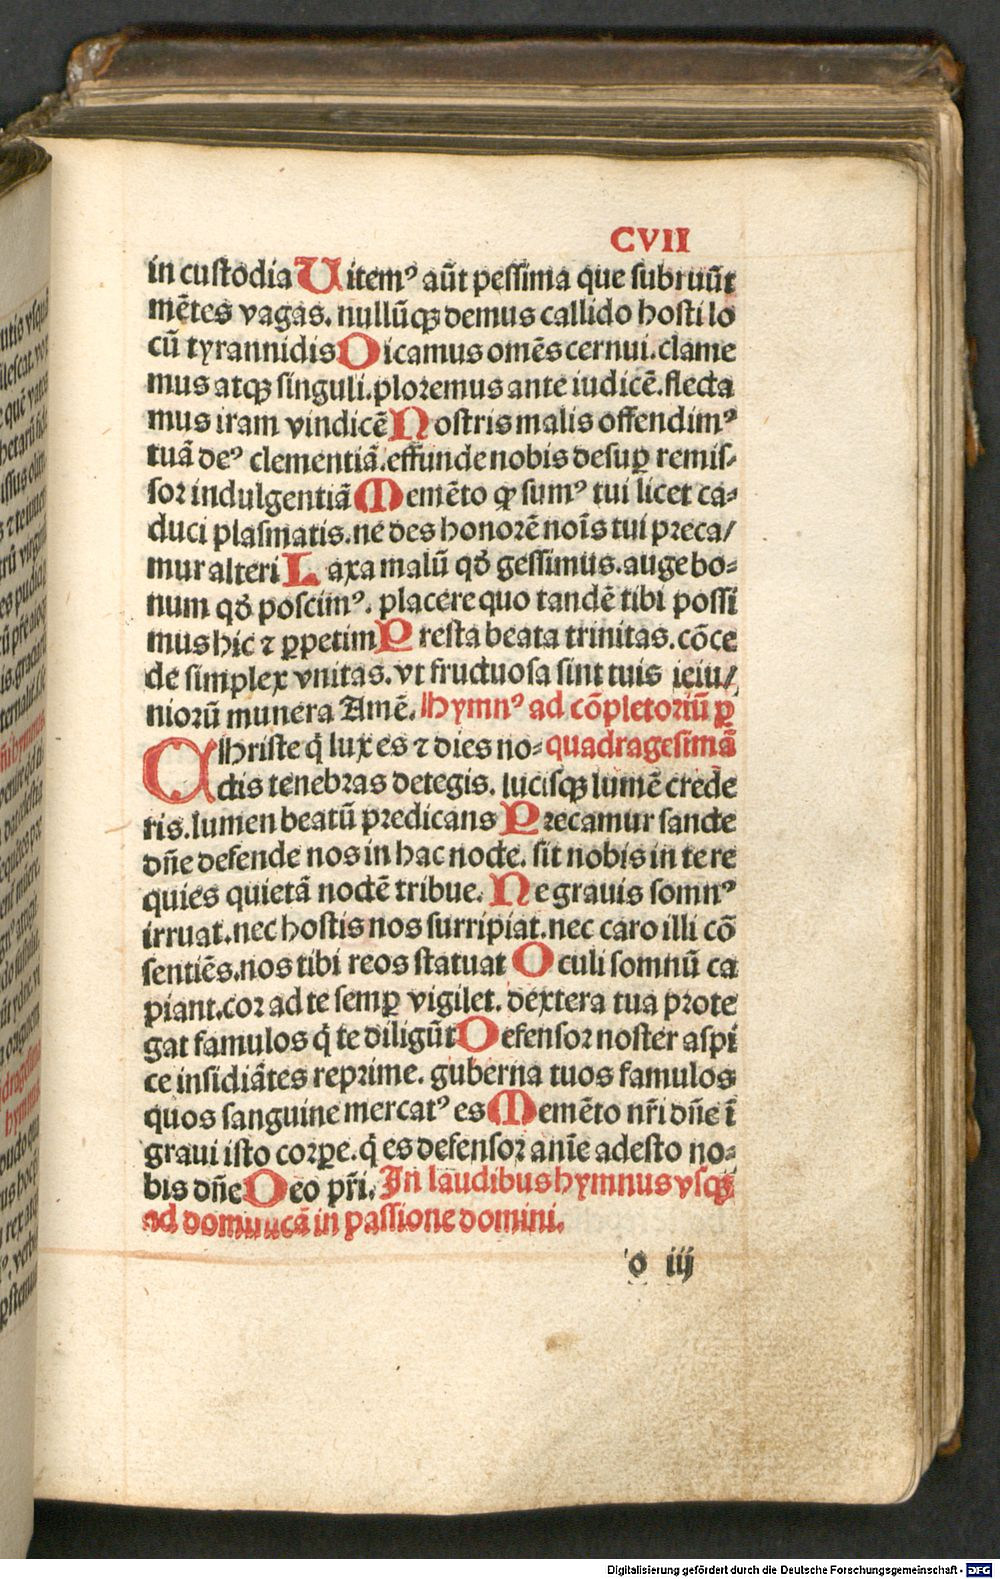 CVII
in custodia Uitemꝰ aūt pessima que subruūt
mētes vagas. nullūqꝫ demus callido hosti lo
cū tyrannidis Dicamus omēs cernui. clame
mus atqꝫ singuli. ploremus ante iudicē. flecta
mus iram vindicē Nostris malis offendimꝰ
tuā deꝰ clementiā. effunde nobis desuꝑ remis⸗
sor indulgentiā Memēto ꝙ sumꝰ tui licet ca⸗
duci plasmatis. ne des honorē noīs tui preca/
mur alteri Laxa malū qđ gessimus. auge bo⸗
num qđ poscimꝰ. placere quo tandē tibi possi
mus hic ⁊ ꝑpetim Presta beata trinitas. cōce
de simplex vnitas. vt fructuosa sint tuis ieiu/
niorū munera Amē. Hymnꝰ ad cōpletoriū ꝑ
Christe q̇ lux es ⁊ dies no⸗ quadragesimā
ctis tenebras detegis. lucisqꝫ lumē crede
ris. lumen beatū predicans Precamur sancte
dn̄e defende nos in hac nocte. sit nobis in te re
quies quietā noctē tribue. Ne grauis somnꝰ
irruat. nec hostis nos surripiat. nec caro illi cō
sentiēs. nos tibi reos statuat Oculi somnū ca
piant. cor ad te semꝑ vigilet. dextera tua prote
gat famulos q̇ te diligūt Defensor noster aspi
ce insidiātes reprime. guberna tuos famulos
quos sanguine mercatꝰ es Memēto nr̄i dn̄e ī
graui isto corꝑe. q̇ es defensor anīe adesto no⸗
bis dn̄e Deo pr̄i. In laudibus hymnus vsqꝫ
ad dominicā in passione domini.
o iij
Digitalisierung gefördert durch die Deutsche Forschungsgemeinschaft - DFG